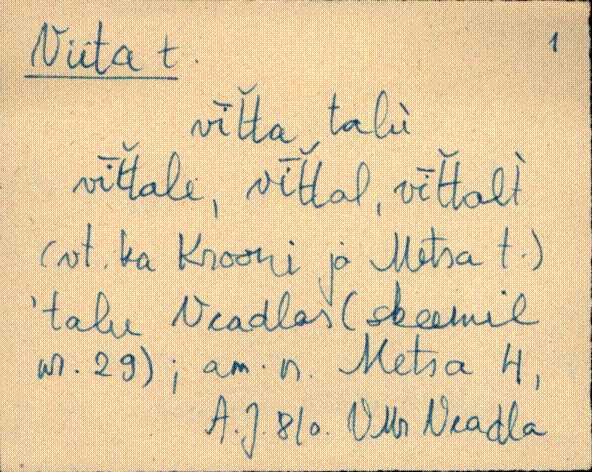 Viita t. 1
vīt̆ta talù
vīt̆tale, vīt̆tal, vīt̆talt̀
(vt. ka Krooni ja Metsa t.)
'talu Neadlas (skeemil
nr. 29); am. n. Metsa 4,
A. J. 81a. VMr Neadla